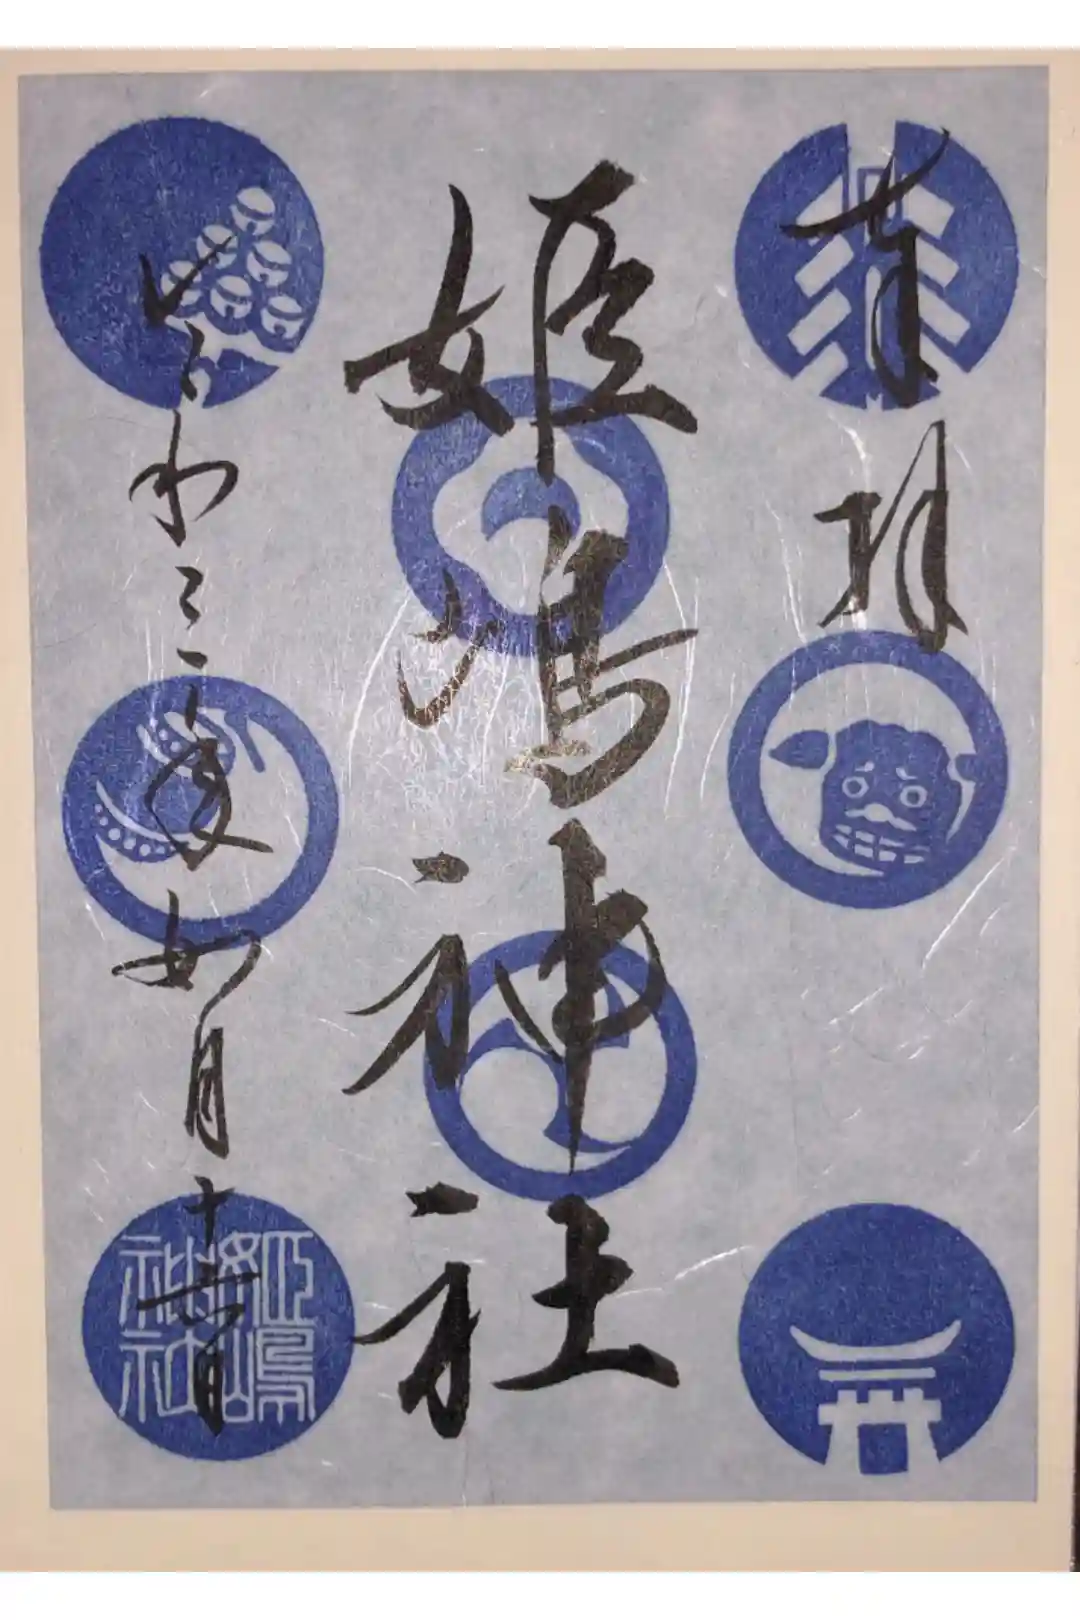 奉拝
姫嶋神社
令和三年如月十一日
姫嶋
神社